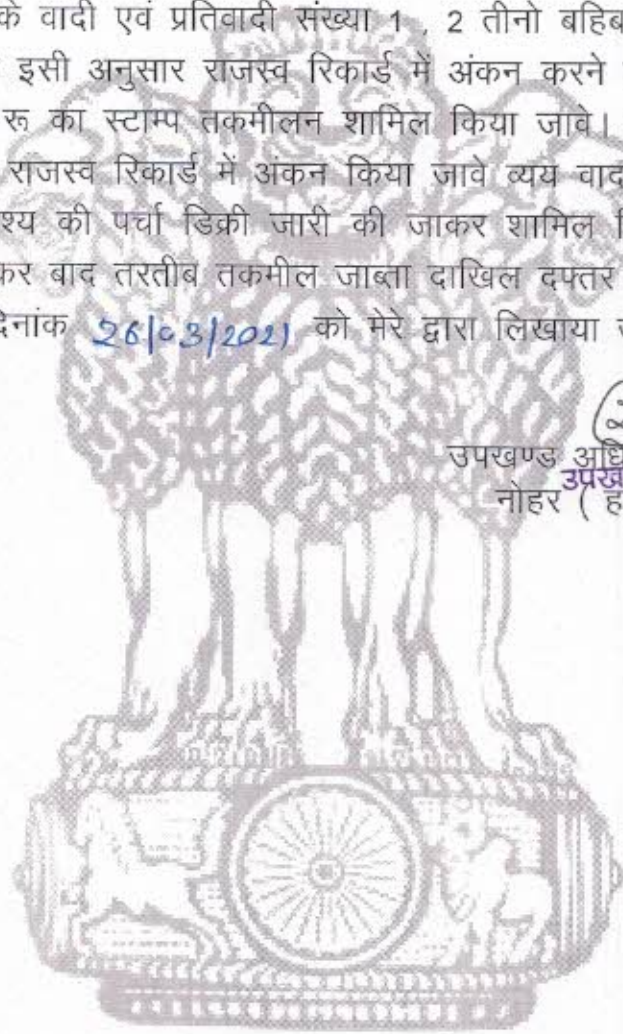 के वादी एवं प्रतिवादी संख्या 1 , 2 तीनो बहिब
इसी अनुसार राजस्व रिकार्ड में अंकन करने
रू का स्टाम्प तकमीलन शामिल किया जावे।
राजस्व रिकार्ड में अंकन किया जावे व्यय वाद
श्य की पर्चा डिक्री जारी की जाकर शामिल
कर बाद तरतीब तकमील जाब्ता दाखिल दफ्तर
दिनांक 26/03/2021 को मेरे द्वारा लिखाया
उपखण्ड अधि
उपख
नोहर ( ह